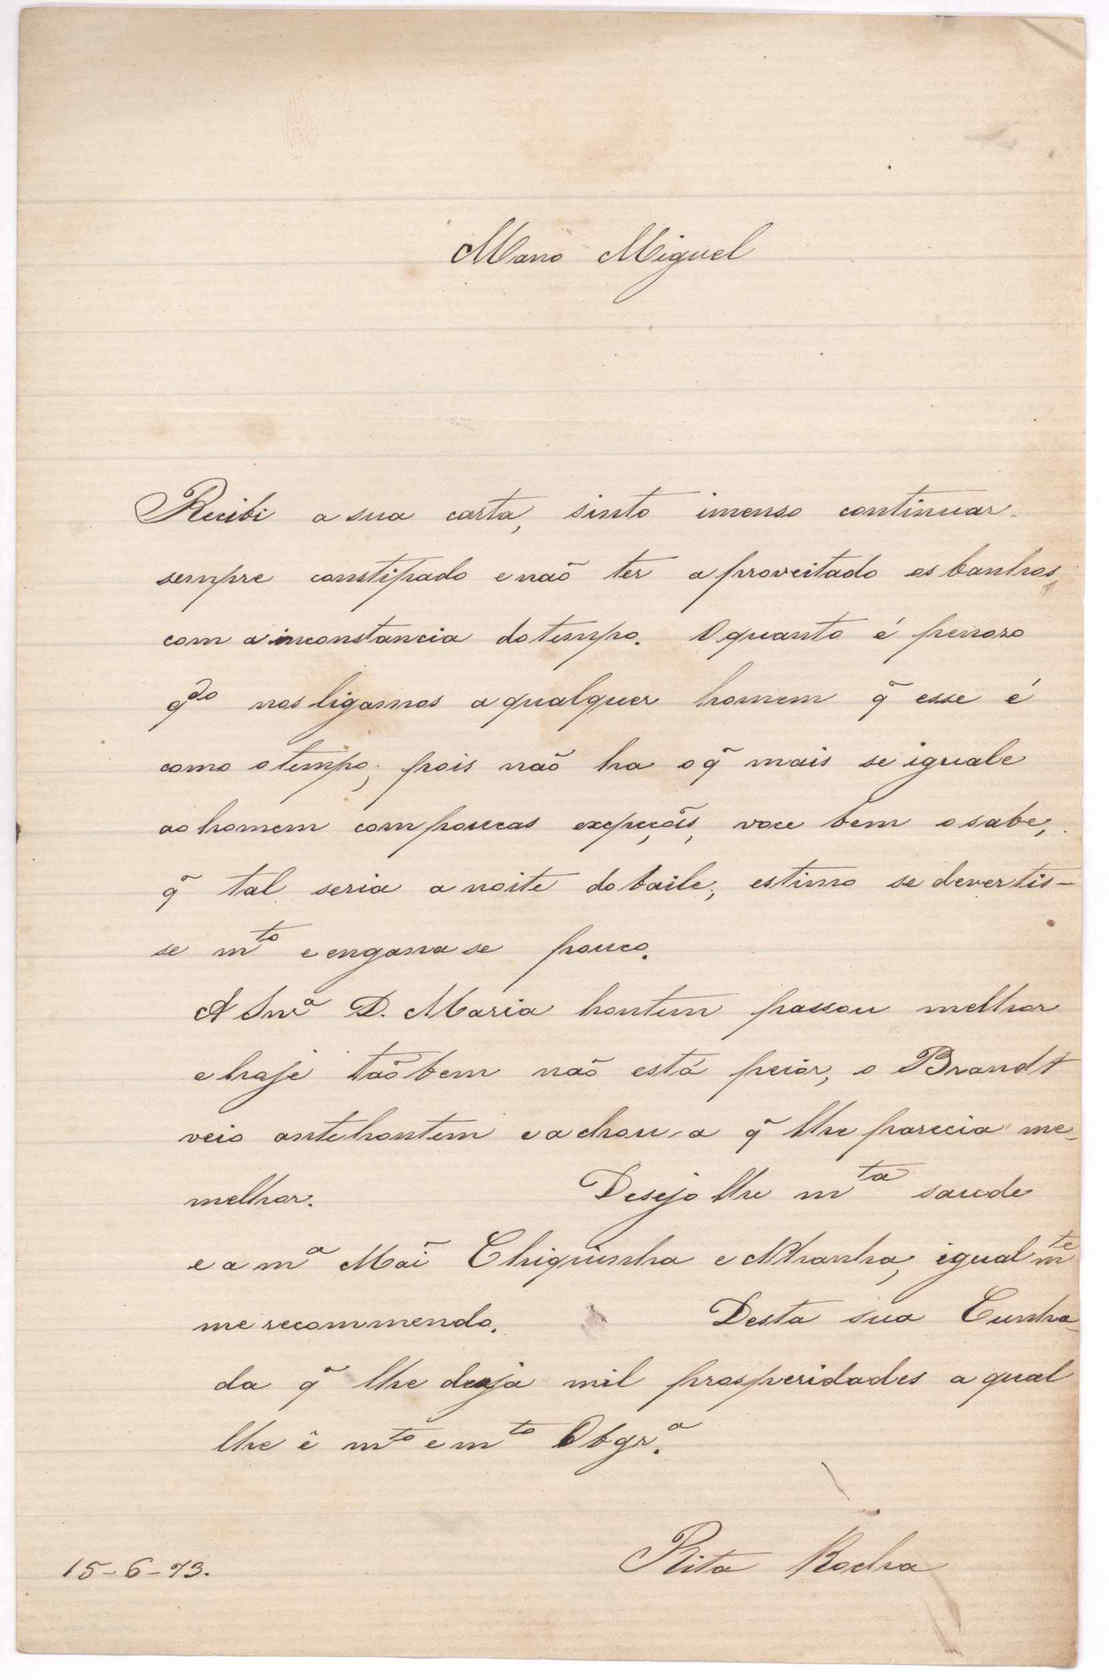 Mano Miguel
Recibi a sua carta, sinto imenso continuar
sempre constipado e não ter aproveitado os banhos,
com a inconstancia do tempo. O quanto é penozo
q.do nos ligamos a qualquer homem q̃ esse é
como o tempo; pois não ha o q̃ mais se iguale
ao homem com poucas excpções, voce bem o sabe,
q̃ tal seria a noite do baile, estimo se devertis-
se m.to e engana se pouco.
A Snr.a D. Maria hontem passou melhor
e hoje tãobem não está peiór, o Brandt
veio antehontem e achou-a q̃ lhe parecia me-
melhor. Desejo lhe m.ta saude
e a m.a Mãi Chiquinha e Nhanha, igualm.te
me recommendo. Desta sua Cunha-
da q̃ lhe deseja mil prosperidades a qual
lhe é m.to e m.to Obgr.a
Rita Rocha
15-6-73.